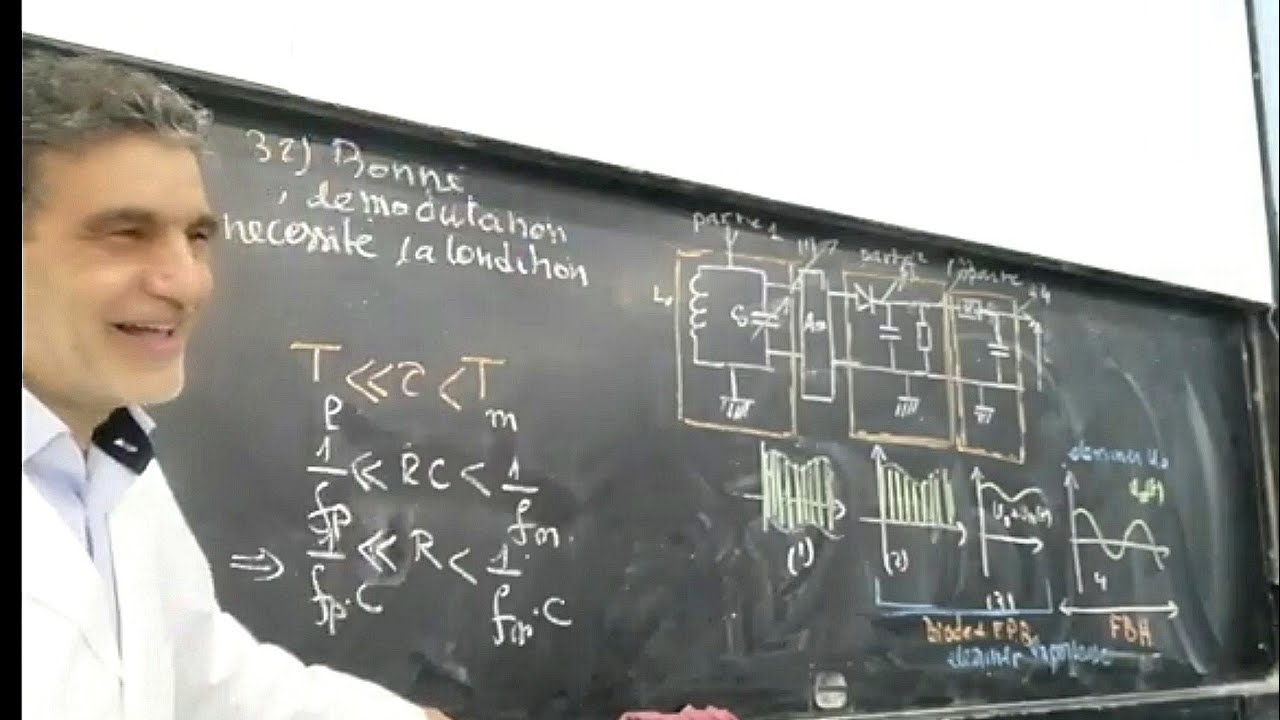 32) Bonne
démodulation
necessite la Condition
T_p << τ < T_m
1/f_p << RC < 1/f_m
⇒ 1/f_p.C << R < 1/f_m.C
partie 1
partie 2
partie
L₀
(1)
(2)
U₀ + U_m(t)
(3)
4
Diode + FPB
FBH